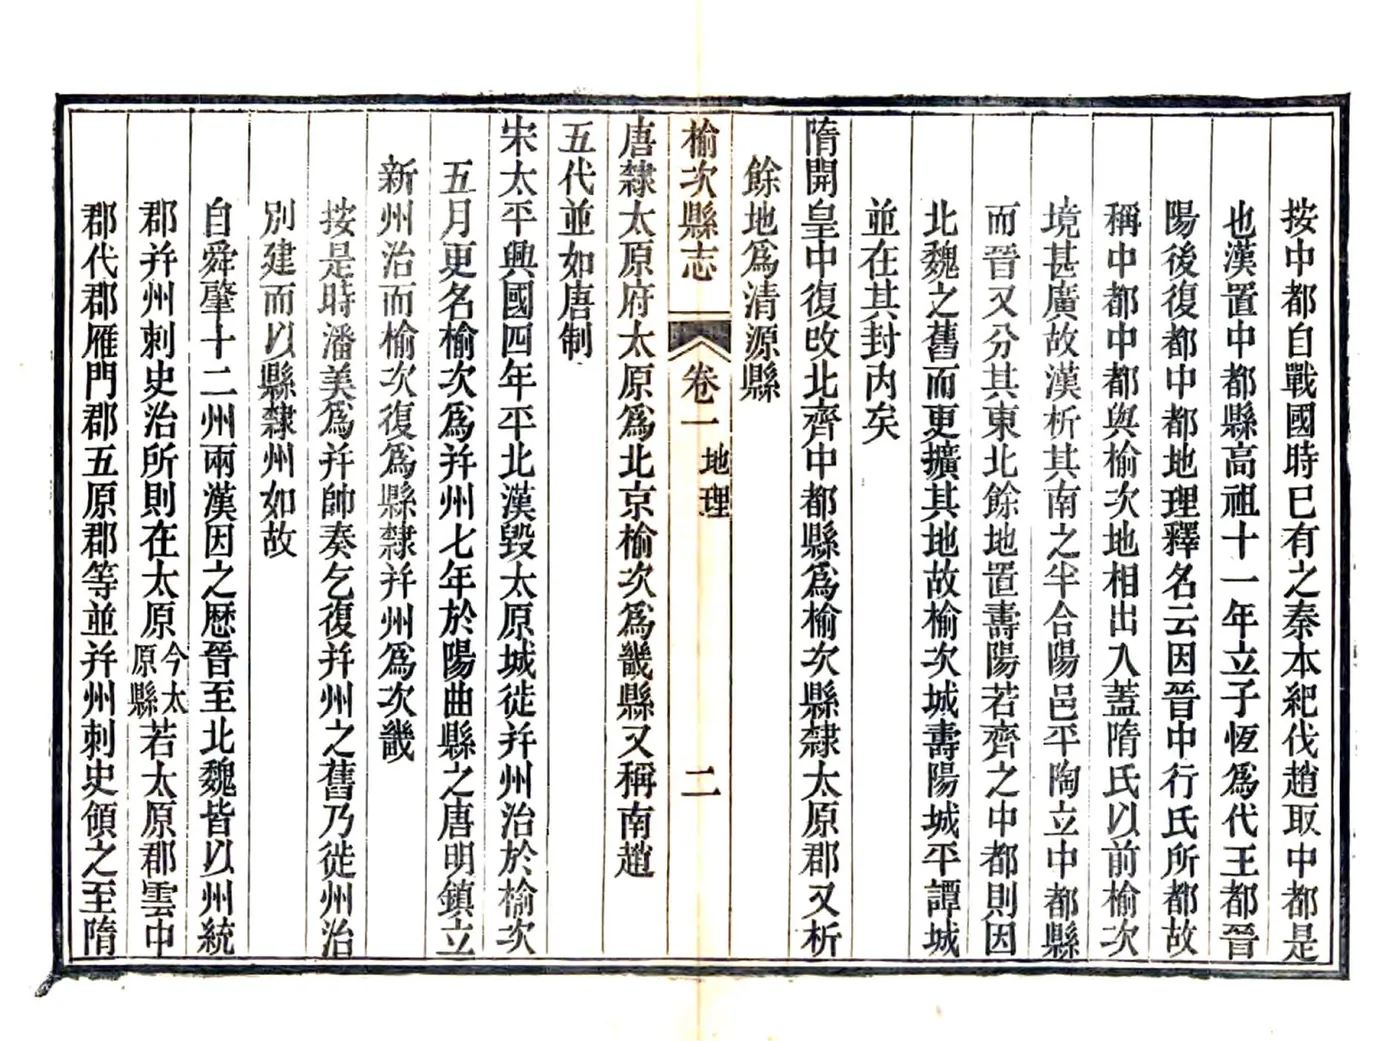 按中都自戰國時已有之秦本紀伐趙取中都是
也漢置中都縣高祖十一年立子恆爲代王都晉
陽後復都中都地理釋名云因晉中行氏所都故
稱中都中都與榆次地相出入蓋隋氏以前榆次
境甚廣故漢析其南之半合陽邑平陶立中都縣
而晉又分其東北餘地置壽陽若齊之中都則因
北魏之舊而更擴其地故榆次城壽陽城平譚城
並在其封内矣
隋開皇中復改北齊中都縣爲榆次縣隸太原郡又析
餘地爲清源縣
榆次縣志 卷一 地理 二
唐隸太原府太原爲北京榆次爲畿縣又稱南趙
五代並如唐制
宋太平興國四年平北漢毀太原城徙并州治於榆次
五月更名榆次爲并州七年於陽曲縣之唐明鎮立
新州治而榆次復爲縣隸并州爲次畿
按是時潘美爲并帥奏乞復并州之舊乃徙州治
別建而以縣隸州如故
自舜肇十二州兩漢因之歷晉至北魏皆以州統
郡并州刺史治所則在太原今太原縣若太原郡雲中
郡代郡雁門郡五原郡等並并州刺史領之至隋